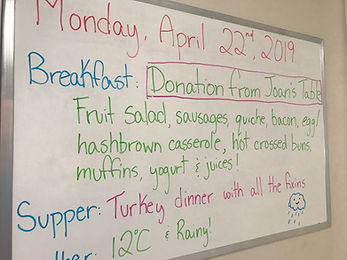 Monday, April 22nd, 2019
Breakfast: Donation from Joan's Table
Fruit salad, sausages, quiche, bacon, egg/
hashbrown casserole, hot crossed buns,
muffins, yogurt & juices!
Supper: Turkey dinner with all the fixins
12°C & Rainy!